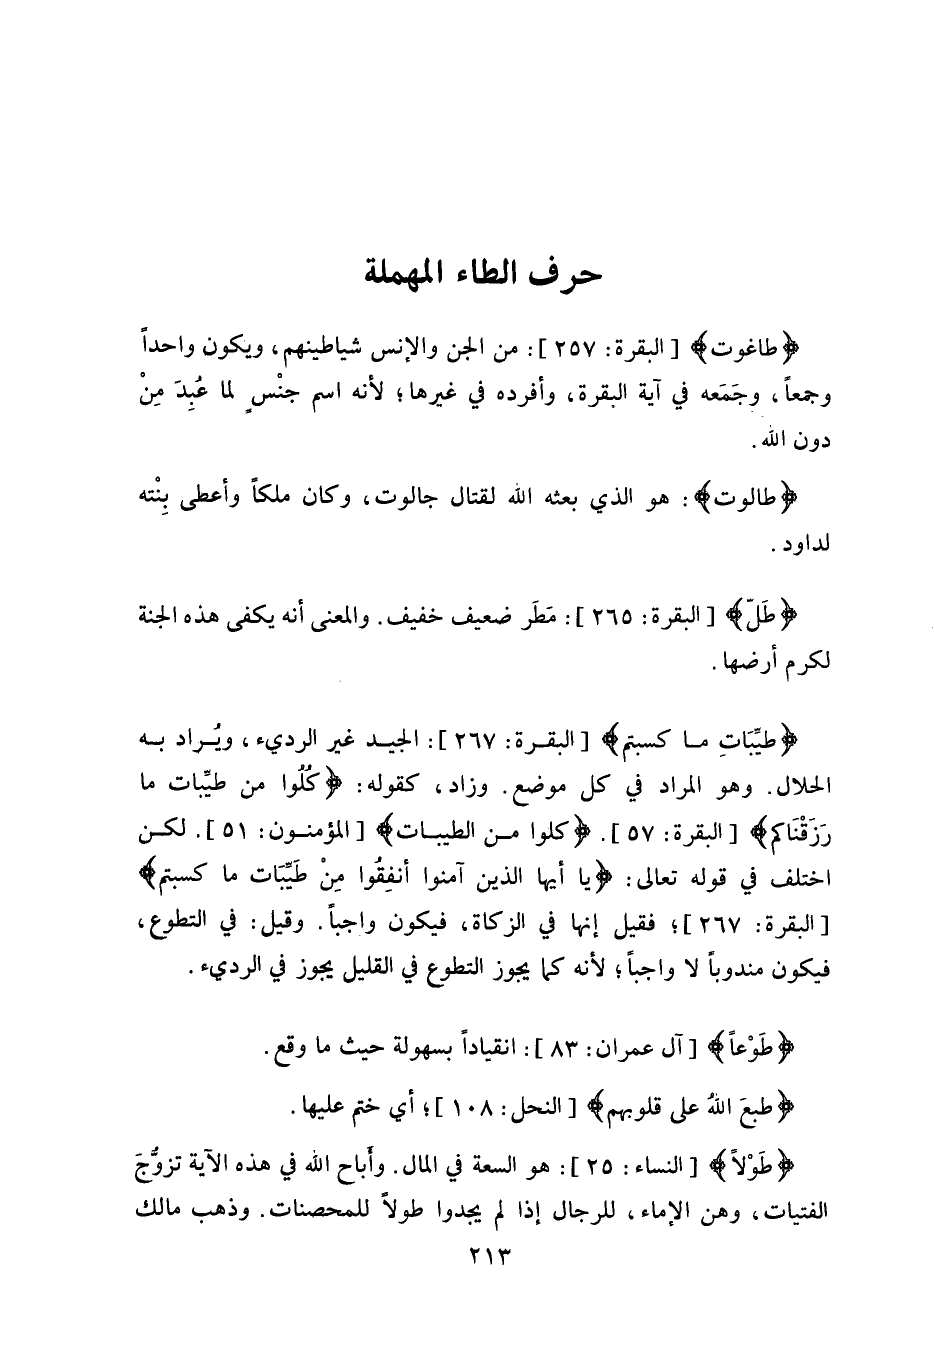 حرف الطاء المهملة
﴿طاغوت﴾ [ البقرة: ٢٥٧ ]: من الجن والإنس شياطينهم، ويكون واحداً
وجمعاً، وجَمَعه في آية البقرة، وأفرده في غيرها؛ لأنه اسم جنْسٍ لما عُبِدَ مِنْ
دون الله.
﴿طالوت﴾: هو الذي بعثه الله لقتال جالوت، وكان ملكاً وأعطى بِنْته
لداود.
﴿طَلّ﴾ [ البقرة: ٢٦٥ ]: مَطَر ضعيف خفيف. والمعنى أنه يكفى هذه الجنة
لكرم أرضها.
﴿طيِّبَاتِ مـا كسبتم﴾ [ البقـرة: ٢٦٧ ]: الجيـد غير الرديء، ويُـراد بـه
الحلال. وهو المراد في كل موضع. وزاد، كقوله: ﴿كُلُوا من طيِّبات ما
رَزَقْنَاكم﴾ [ البقرة: ٥٧ ]. ﴿كلوا مـن الطيبـات﴾ [ المؤمنـون: ٥١ ]. لكـن
اختلف في قوله تعالى: ﴿يا أيها الذين آمنوا أنفِقُوا مِنْ طَيِّبَات ما كسبتم﴾
[ البقرة: ٢٦٧ ]؛ فقيل إنها في الزكاة، فيكون واجباً. وقيل: في التطوع،
فيكون مندوباً لا واجباً؛ لأنه كما يجوز التطوع في القليل يجوز في الرديء.
﴿طَوْعاً﴾ [ آل عمران: ٨٣ ]: انقياداً بسهولة حيث ما وقع.
﴿طبعَ اللهُ على قلوبهم﴾ [ النحل: ١٠٨ ]؛ أي ختم عليها.
﴿طَوْلاً﴾ [ النساء: ٢٥ ]: هو السعة في المال. وأَباح الله في هذه الآية تزوُّجَ
الفتيات، وهن الإماء، للرجال إذا لم يجدوا طولاً للمحصنات. وذهب مالك
٢١٣